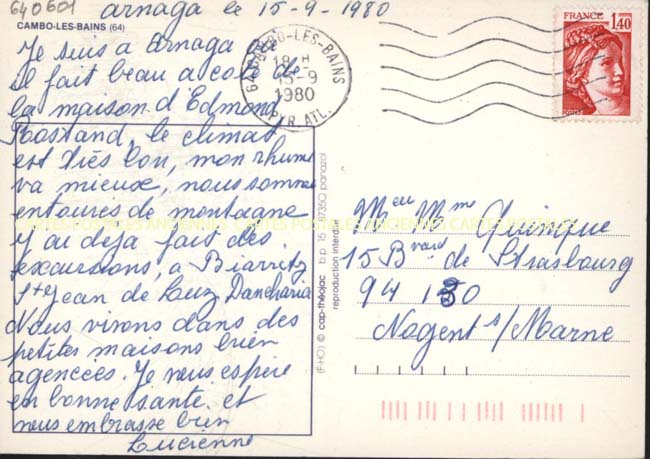 640601
arnaga le 15-9-1980
CAMBO-LES-BAINS (64)
Je suis a Arnaga
il fait beau a coté de
la maison d'Edmond
Rostand, le climat
est très bon, mon rhume
va mieux, nous sommes
entourés de montagne
y ai deja fait des
excursions, a Biarritz
St Jean de Luz Dancharia
Nous vivons dans des
petites maisons bien
agencées. Je vous espère
en bonne santé et
vous embrasse bien
Lucienne
64 CAMBO-LES-BAINS
18 H
15-9
1980
PYR. ATL.
FRANCE
1,40
POSTES
Mr et Mme Quinque
15 Bvard de Strasbourg
94 130
Nogent s/Marne
(F-HO) © cap-théojac b.p. 15 - 87350 panazol
reproduction interdite
CARTES POSTALES ANCIENNES CARTES POSTALES ANCIENNES CARTES POSTALES